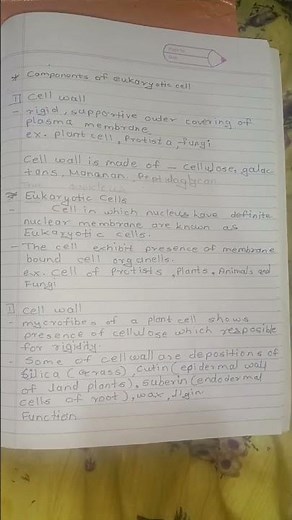 * Components of eukaryotic cell
I] Cell wall
- rigid, supportive outer covering of
plasma membrane
ex. plant cell, Protista, fungi
Cell wall is made of - cellulose, galac
tans, Mananan, Peptidoglycan
* Eukaryotic Cells
- Cell in which nucleus have definite
nuclear membrane are known as
Eukaryotic cells.
- The cell exhibit presence of membrane
bound cell organelle.
ex. Cell of Protists, Plants, Animals and
Fungi
I] Cell wall
- mycrofibes of a plant cell shows
presence of cellulose which resposible
for rigidity.
- Some of cell wall are depositions of
silica (Grass), cutin (epidermal wall
of land plants), suberin (endodermal
cells of root), wax, lignin
Function